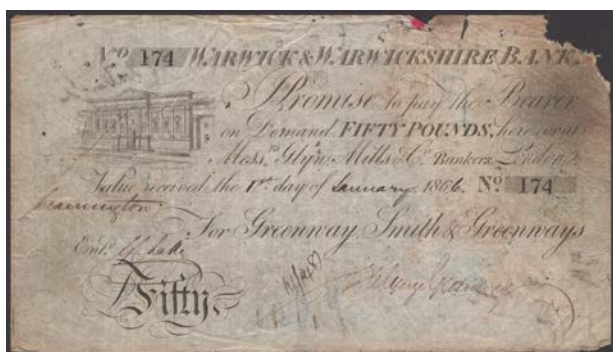 No 174 WARWICK & WARWICKSHIRE BANK.
Promise to pay the Bearer
on Demand FIFTY POUNDS, here or at
Messrs Glyn, Mills & Co. Bankers London.
Value received the 1st day of January 1866. No 174
Leamington
For Greenway, Smith & Greenways
Entd.
Fifty